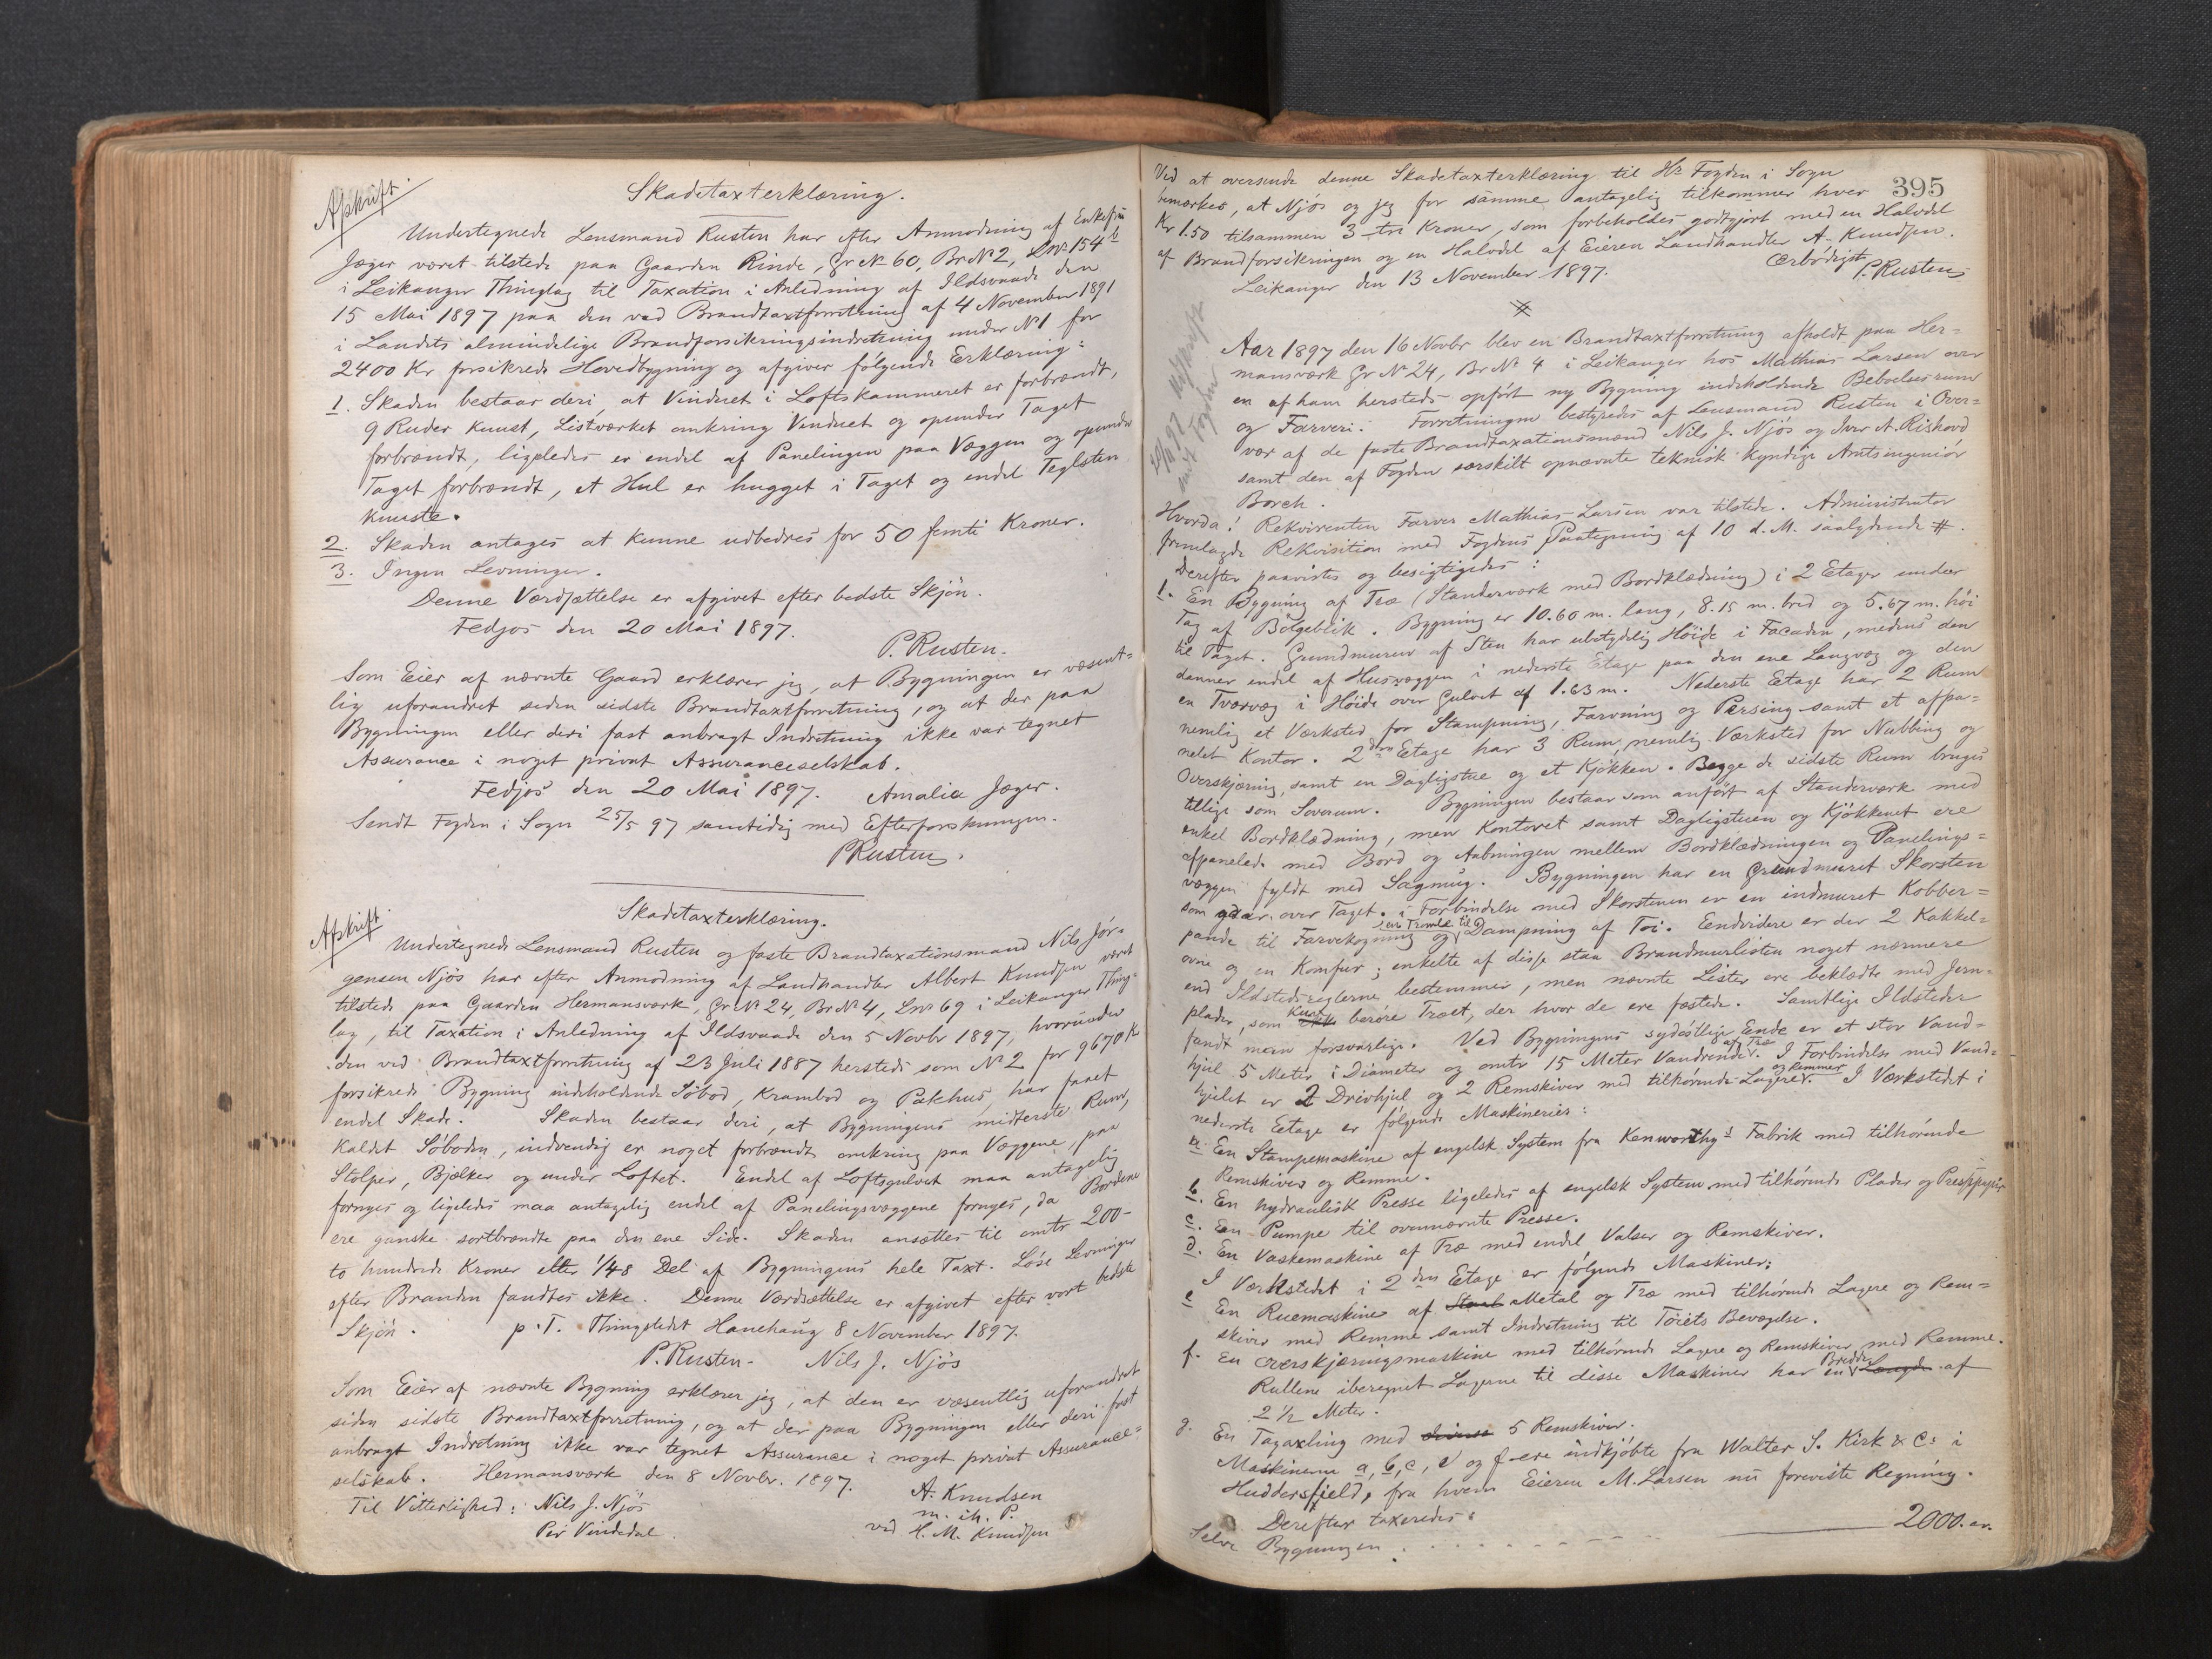 Afskrift.
Skadetaxterklæring.
Undertegnede Lensmand Rusten har efter Anmodning af Enkefru
Jæger været tilstede paa Gaarden Rinde, Gr № 60, Br № 2, Lnr 154 b
i Leikanger Thinglag til Taxation i Anledning af Ildsvaade den
15 Mai 1897 paa den ved Brandtaxtforretning af 4 November 1891
i Landets almindelige Brandforsikringsindretning under № 1 for
2400 Kr forsikrede Hovedbygning og afgiver følgende Erklæring:
1. Skaden bestaar deri, at Vinduet i Loftskammeret er forbrændt,
9 Ruder knust, Listværket omkring Vinduet og opunder Taget
forbrændt, ligeledes er endel af Panelingen paa Væggen og opunder
Taget forbrændt, et Hul er hugget i Taget og endel Teglsten
knuste.
2. Skaden antages at kunne udbedres for 50 femti Kroner.
3. Ingen Levninger.
Denne Værdsættelse er afgivet efter bedste Skjön.
Fedjos den 20 Mai 1897.
P. Rusten.
Som Eier af nævnte Gaard erklærer jeg, at Bygningen er væsent=
lig uforandret siden sidste Brandtaxtforretning, og at der paa
Bygningen eller deri fast anbragt Indretning ikke var tegnet
Assurance i noget privat Assuranceselskab.
Fedjos den 20 Mai 1897. Amalia Jæger.
Sendt Fogden i Sogn 25/5 97 samtidig med Efterforskningen.
P Rusten.
Afskrift.
Skadetaxterklæring.
Undertegnede Lensmand Rusten og faste Brandtaxationsmand Nils Jör=
gensen Njös har efter Anmodning af Landhandler Albert Knudsen været
tilstede paa Gaarden Hermansværk, Gr № 24, Br № 4, Lnr 69 i Leikanger Thing=
lag, til Taxation i Anledning af Ildsvaade den 5 Novbr 1897, hvorunder
den ved Brandtaxtforretning af 23 Juli 1887 herstedes som № 2 for 9670 Kr
forsikrede Bygning indeholdende Söbod, Krambod og Pakhus, har faaet
endel Skade. Skaden bestaar deri, at Bygningens midterste Rum,
kaldet Söboden, indvendig er noget forbrændt omkring paa Væggene, paa
Stolper, Bjælker og under Loftet. Endel af Loftsgulvet maa antagelig
fornyes og ligeledes maa antagelig endel af Panelingsvæggene fornyes, da Bordene
ere ganske sortbrændte paa den ene Side. Skaden ansættes til omtr 200-
to hundrede Kroner eller 1/48 Del af Bygningens hele Taxt. Löse Levninger
efter Branden fandtes ikke. Denne Værdsættelse er afgivet efter vort bedste
Skjön. p.T. Thingstedet Hanehaug 8 November 1897.
P. Rusten. Nils J. Njös
Som Eier af nævnte Bygning erklærer jeg, at den er væsentlig uforandret
siden sidste Brandtaxtforretning, og at der paa Bygningen eller deri fast
anbragt Indretning ikke var tegnet Assurance i noget privat Assurance=
selskab. Hermansværk den 8 Novbr. 1897.
Til Vitterlighed: Nils J. Njös
Per Vindedal.
A. Knudsen
m. ih. P.
ved H. M. Knudsen
395
Ved at oversende denne Skadetaxterklæring til Hr Fogden i Sogn
bemærkes, at Njös og jeg for samme antagelig tilkommer hver
Kr 1.50 tilsammen 3 tre Kroner, som forbeholdes godtgjort med en Halvdel
af Brandforsikringen og en Halvdel af Eieren Landhandler A. Knudsen.
Leikanger den 13 November 1897. Ærbödigst
P. Rusten
Aar 1897 den 16 Novbr blev en Brandtaxtforretning afholdt paa Her=
mansværk Gr № 24, Br № 4 i Leikanger hos Mathias Larsen over
en af ham herstedes opfört ny Bygning indeholdende Beboelsesrum
og Farveri. Forretningen bestyredes af Lensmand Rusten i Over=
vær af de faste Brandtaxationsmænd Nils J. Njös og Iver A. Rishovd
samt den af Fogden særskilt opnævnte teknisk kyndige Amtsingeniör
Borch.
Hvorda! Rekvirenten Farver Mathias Larsen var tilstede. Administrator
fremlagde Rekvisition med Fogdens Paategning af 10 d. M. saalydende #.
Derefter paavistes og besigtigedes:
1. En Bygning af Træ (Standerværk med Bordklædning) i 2 Etager under
Tag af Bölgeblik. Bygning er 10.60 m. lang, 8.15 m. bred og 5.67 m. höi
til Taget. Grundmuren af Sten har ubetydelig Höide i Facaden, medens den
danner endel af Husvæggen i nederste Etage paa den ene Langvæg og den
en Tværvæg i Höide over Gulvet af 1.63 m. Nederste Etage har 2 Rum
nemlig et Værksted for Stampning, Farvning og Persing samt et afpa=
nelet Kontor. 2den Etage har 3 Rum, nemlig Værksted for Nubbing og
Overskjæring, samt en Dagligstue og et Kjökken. Begge de sidste Rum bruges
tillige som Soverum. Bygningen bestaar som anfört af Standerværk med
enkel Bordklædning, men Kontoret samt Dagligstuen og Kjökkenet ere
afpanelede med Bord og Aabningen mellem Bordklædningen og Panelings=
væggen fyldt med Sagmug. Bygningen har en Grundmuret Skorsten
som gaar over Taget. i Forbindelse med Skorstenen er en indmuret Kobber=
pande til Farvekogning og en Tromle til Dampning af Töi. Endvidere er der 2 Kakkel=
ovne og en Komfur; enkelte af disse staa Brandmurlisten noget nærmere
end Ildstedsreglerne bestemmer, men nævnte Lister ere beklædte med Jern=
plader, som kun beröre Træet, der hvor de ere fæstede. Samtlige Ildsteder
fandt man forsvarlige. Ved Bygningens sydöstlige Ende er et stor Vand=
hjul 5 Meter i Diameter og omtr 15 Meter Vandrende af Træ. I Forbindelse med Vand=
hjulet er 2 Drivhjul og 2 Remskiver med tilhörende Lagere og Remmer. I Værkstedet i
nederste Etage er følgende Maskinerier:
a. En Stampemaskine af engelsk System fra Kenworthys Fabrik med tilhörende
Remskiver og Remme.
b. En hydraulisk Presse ligeledes af engelsk System med tilhörende Plader og Presspapir
c. En Pumpe til ovennævnte Presse.
d. En Vaskemaskine af Træ med endel Valser og Remskiver.
I Værkstedet i 2den Etage er følgende Maskiner:
e En Ruemaskine af Staal Metal og Træ med tilhörende Lagere og Rem=
skiver med Remme samt Indretning til Töiets Bevægelse.
f. En Overskjæringsmaskine med tilhörende Lagere og Remskiver med Remme.
Rullene iberegnet Lagerne til disse Maskiner har en Bredde Længde af
2 1/2 Meter.
g. En Tagaxling med diverse 5 Remskiver.
Maskinerne a, b, c, e og f ere indkjöbte fra Walter S. Kirk & Co i
Huddersfield, fra hvem Eieren M. Larsen nu foreviste Regning.
Derefter taxeredes:
Selve Bygningen . . . . . . . 2000.-